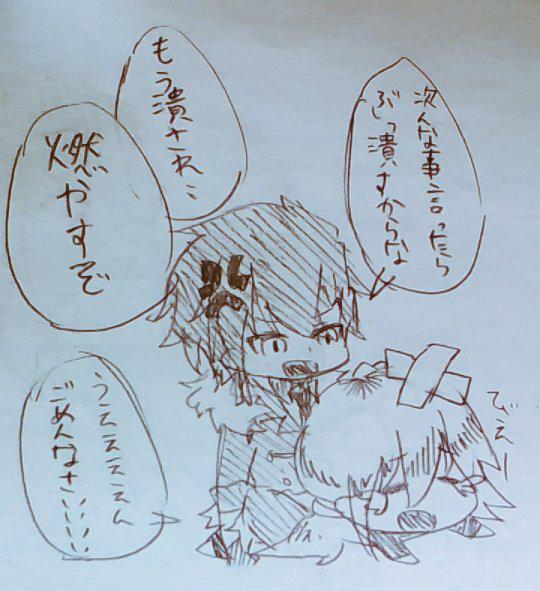 次んな事言ったら
ぶっ潰すからな
もう潰され…
燃やすぞ
うえええん
ごめんなさいいいい
びえー